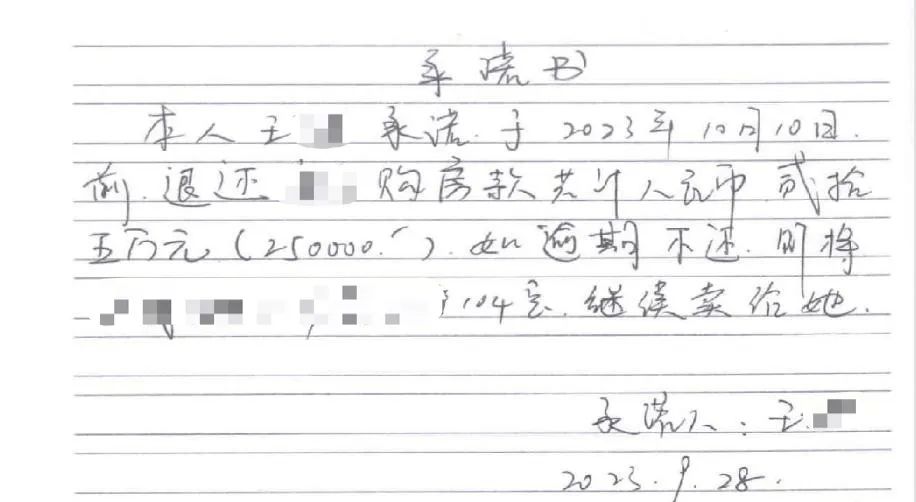 承诺书
本人王 承诺.于2023年10月10日.
前.退还 购房款共计人民币贰拾
五万元(250000.-).如逾期不还.则将
104室.继续卖给她.
承诺人:王
2023.9.28.